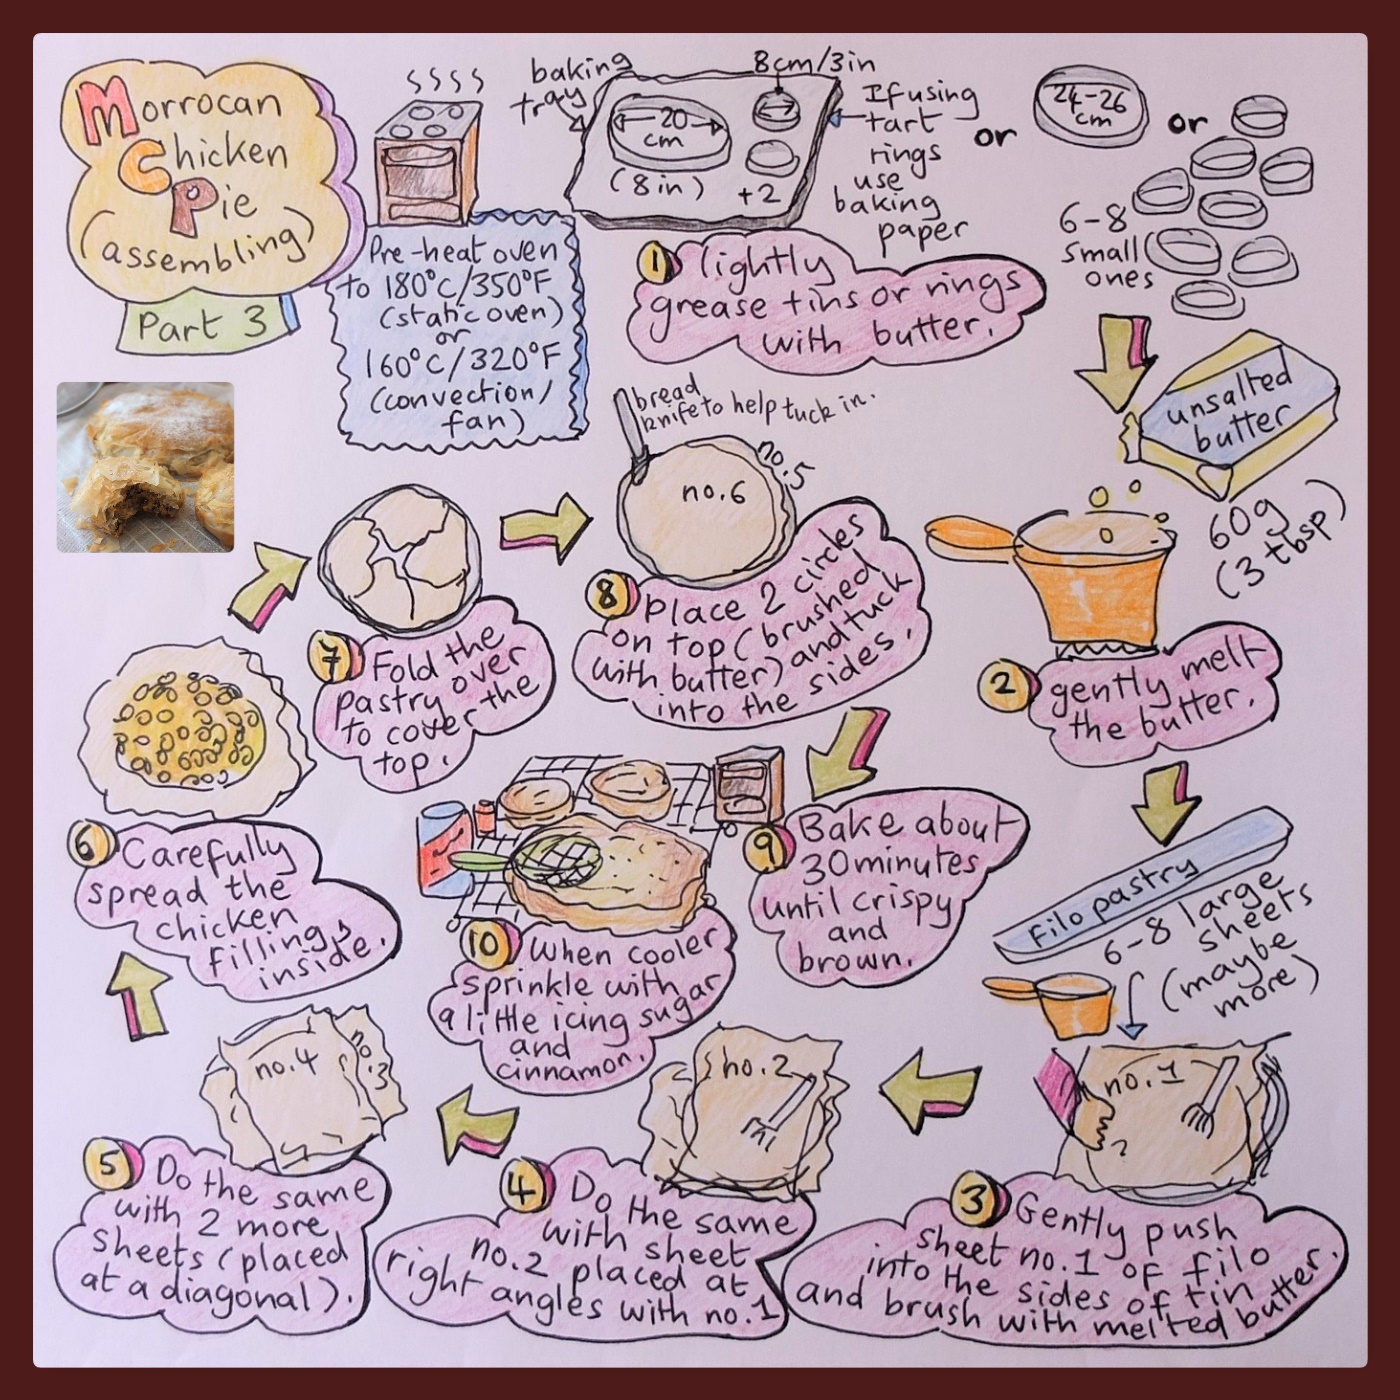 Morrocan
Chicken
Pie
(assembling)
Part 3
Pre-heat oven
to 180°C/350°F
(static oven)
or
160°C/320°F
(convection/
fan)
baking
tray
20
cm
(8in)
+2
8cm/3in
If using
tart
rings
use
baking
paper
or
24-26
cm
or
6-8
small
ones
1 lightly
grease tins or rings
with butter.
unsalted
butter
60g
(3 tbsp)
2 gently melt
the butter.
filo pastry
6-8 large
sheets
(maybe
more)
no.1
3 Gently push
sheet no.1 of filo
into the sides of tin
and brush with melted butter.
no.2
4 Do the same
with sheet
no.2 placed at
right angles with no.1
no.4
no.3
5 Do the same
with 2 more
sheets (placed
at a diagonal).
6 Carefully
spread the
chicken
filling
inside.
7 Fold the
pastry over
to cover the
top.
bread
knife to help tuck in.
no.5
no.6
8 Place 2 circles
on top (brushed
with butter) and tuck
into the sides.
9 Bake about
30 minutes
until crispy
and
brown.
10 When cooler
sprinkle with
a little icing sugar
and
cinnamon.